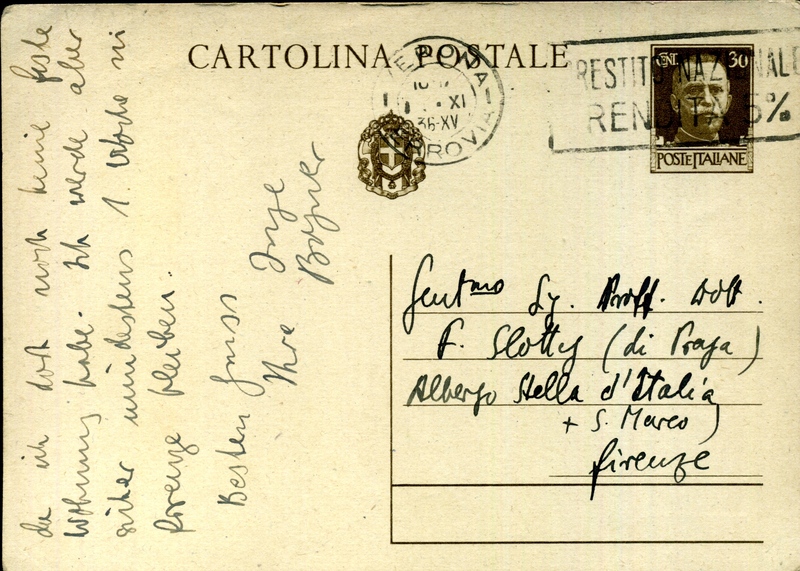 CARTOLINA POSTALE
VERONA
XI
36-XV
FERROVIA
PRESTITO NAZIONALE
RENDITA 5%
CENT. 30
POSTE ITALIANE
Gentmo Sg. Proff. Dott.
F. Slotty (di Praga)
Albergo Stella d'Italia
+ S. Marco)
Firenze
da ich dort noch keine feste
Wohnung habe. Ich werde aber
sicher mindestens 1 Woche in
Firenze bleiben.
Besten Gruss
Ihre Inge